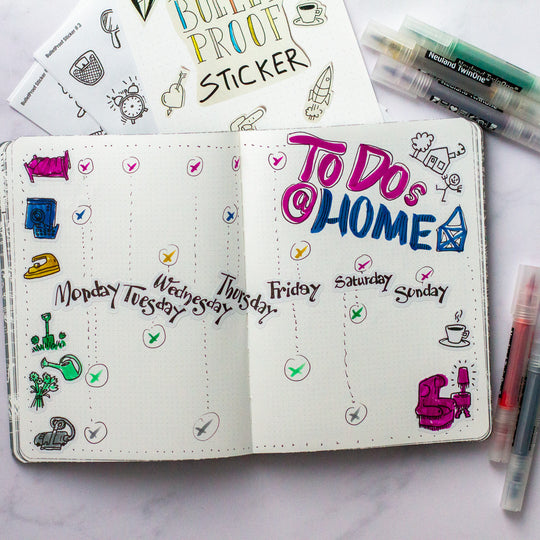 BulletProof Sticker # 3
BulletProof Sticker
BULLET
PROOF
STICKER
Neuland TwinOne
Neuland TwinOne
TO DOs
@HOME
Monday
Tuesday
Wednesday
Thursday
Friday
Saturday
Sunday